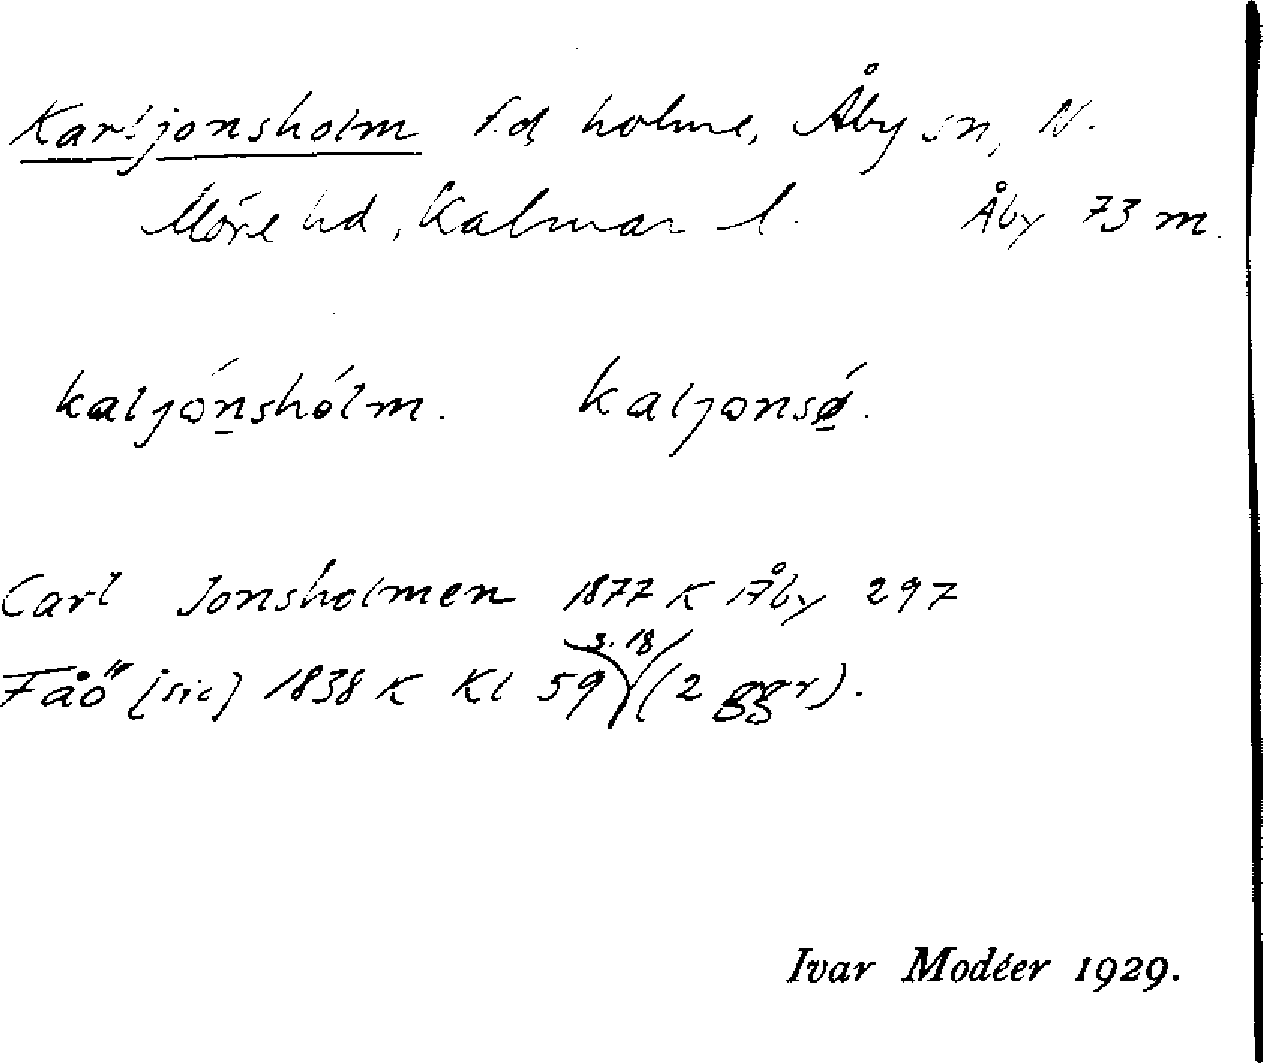 Karljonsholm f.d. holme, Åby sn, N.
Möre hd, Kalmar l. Åby 73 m.
kaljónshólm. kaljonsǿ.
Carl Jonsholmen 1877 K Åby 297
Fåö [sic] 1838 K Kl 59 s. 18 (2 ggr).
Ivar Modéer 1929.